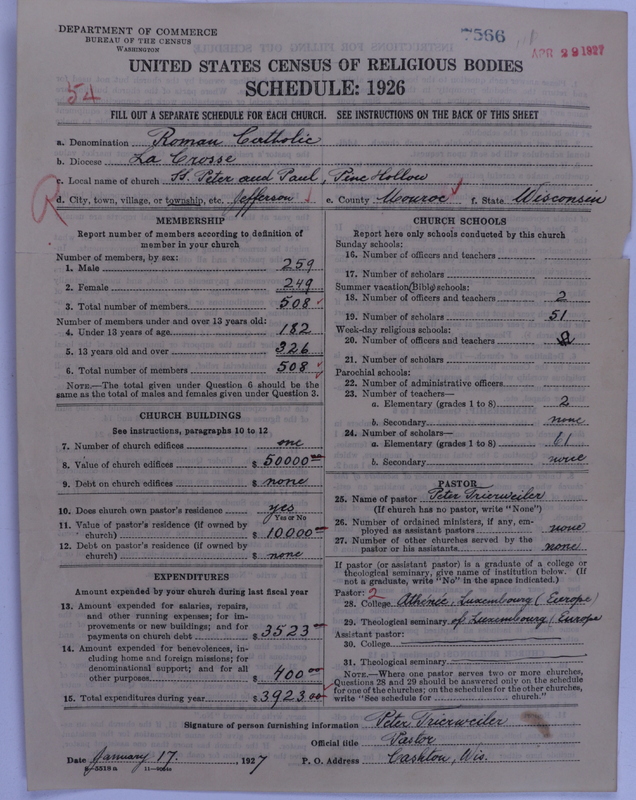 DEPARTMENT OF COMMERCE
BUREAU OF THE CENSUS
WASHINGTON
7566
APR 29 1927
UNITED STATES CENSUS OF RELIGIOUS BODIES
SCHEDULE: 1926
54
FILL OUT A SEPARATE SCHEDULE FOR EACH CHURCH. SEE INSTRUCTIONS ON THE BACK OF THIS SHEET
a. Denomination Roman Catholic
b. Diocese La Crosse
c. Local name of church St. Peter and Paul, Pine Hollow
R
d. City, town, village, or township, etc. Jefferson e. County Monroe f. State Wisconsin
MEMBERSHIP
Report number of members according to definition of
member in your church
Number of members, by sex:
1. Male 259
2. Female 249
3. Total number of members 508
Number of members under and over 13 years old:
4. Under 13 years of age 182
5. 13 years old and over 326
6. Total number of members 508
NOTE.—The total given under Question 6 should be the
same as the total of males and females given under Question 3.
CHURCH BUILDINGS
See instructions, paragraphs 10 to 12
7. Number of church edifices one
8. Value of church edifices $ 50000
9. Debt on church edifices $ none
10. Does church own pastor's residence yes
Yes or No
11. Value of pastor's residence (if owned by
church) $ 10000
12. Debt on pastor's residence (if owned by
church) $ none
EXPENDITURES
Amount expended by your church during last fiscal year
13. Amount expended for salaries, repairs,
and other running expenses; for im-
provements or new buildings; and for
payments on church debt $ 3523
14. Amount expended for benevolences, in-
cluding home and foreign missions; for
denominational support; and for all
other purposes $ 400
15. Total expenditures during year $ 3923.00
CHURCH SCHOOLS
Report here only schools conducted by this church
Sunday schools:
16. Number of officers and teachers
17. Number of scholars
Summer vacation (Bible) schools:
18. Number of officers and teachers 2
19. Number of scholars 51
Week-day religious schools:
20. Number of officers and teachers
21. Number of scholars
Parochial schools:
22. Number of administrative officers
23. Number of teachers—
a. Elementary (grades 1 to 8) 2
b. Secondary none
24. Number of scholars—
a. Elementary (grades 1 to 8) 61
b. Secondary none
PASTOR
25. Name of pastor Peter Trierweiler
(If church has no pastor, write "None")
26. Number of ordained ministers, if any, em-
ployed as assistant pastors none
27. Number of other churches served by the
pastor or his assistants none
If pastor (or assistant pastor) is a graduate of a college or
theological seminary, give name of institution below. (If
not a graduate, write "No" in the space indicated.)
Pastor: 2
28. College Athénée, Luxembourg (Europe)
29. Theological seminary of Luxembourg (Europe
Assistant pastor:
30. College
31. Theological seminary
NOTE.—Where one pastor serves two or more churches,
Questions 28 and 29 should be answered only on the schedule
for one of the churches; on the schedules for the other churches,
write "See schedule for church."
Signature of person furnishing information Peter Trierweiler
Official title Pastor
Date January 17. , 1927 P. O. Address Cashton, Wis.